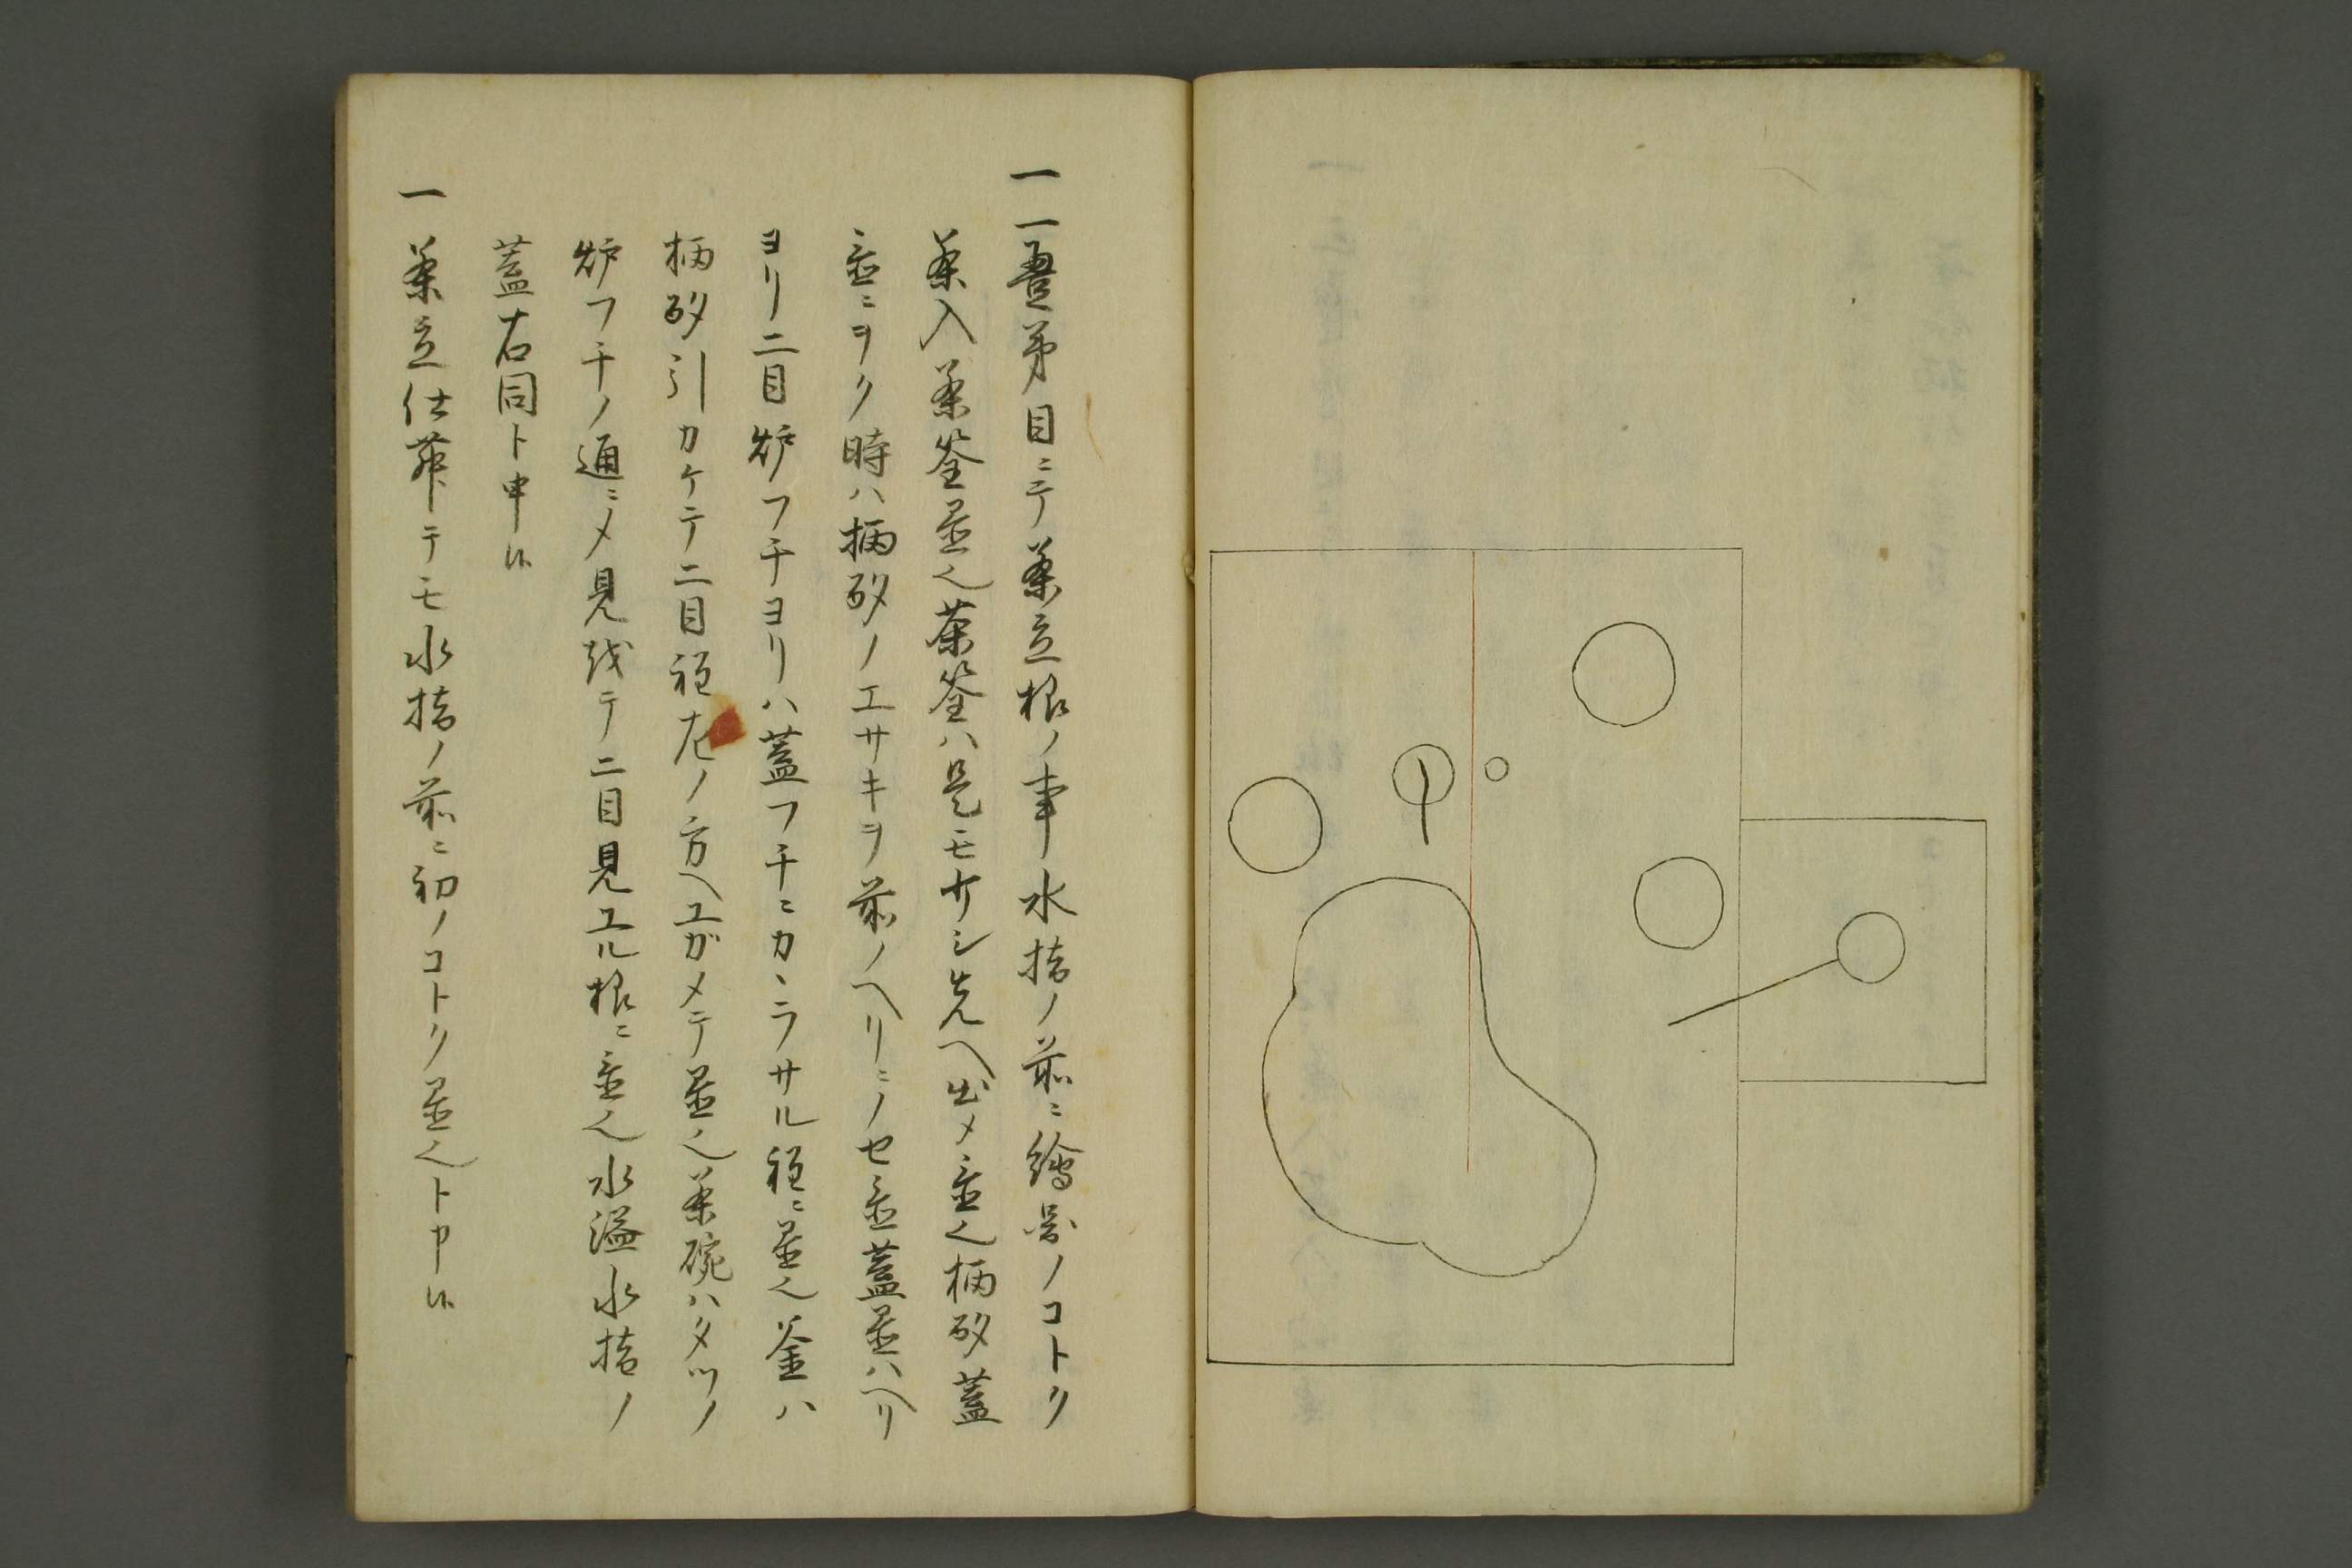 一一畳第目ニテ茶立様ノ事水指ノ前ニ繪圖ノコトク
茶入茶筌置之茶筌ハ是モサシ先ヘ出メ置之柄杓蓋
置ニヲク時ハ柄杓ノエサキヲ前ノヘリニノセ置蓋置ハヘリ
ヨリ二目炉フチヨリハ蓋フチニカヽラサル程ニ置之釜ハ
柄杓引カケテ二目程左ノ方ヘユガメテ置之茶碗ハタツノ
炉フチノ通ニメ見越テ二目見ユル様ニ置之水溢水指ノ
蓋右同ト申候
一茶立仕舞テモ水指ノ前ニ初ノコトク置之ト申候